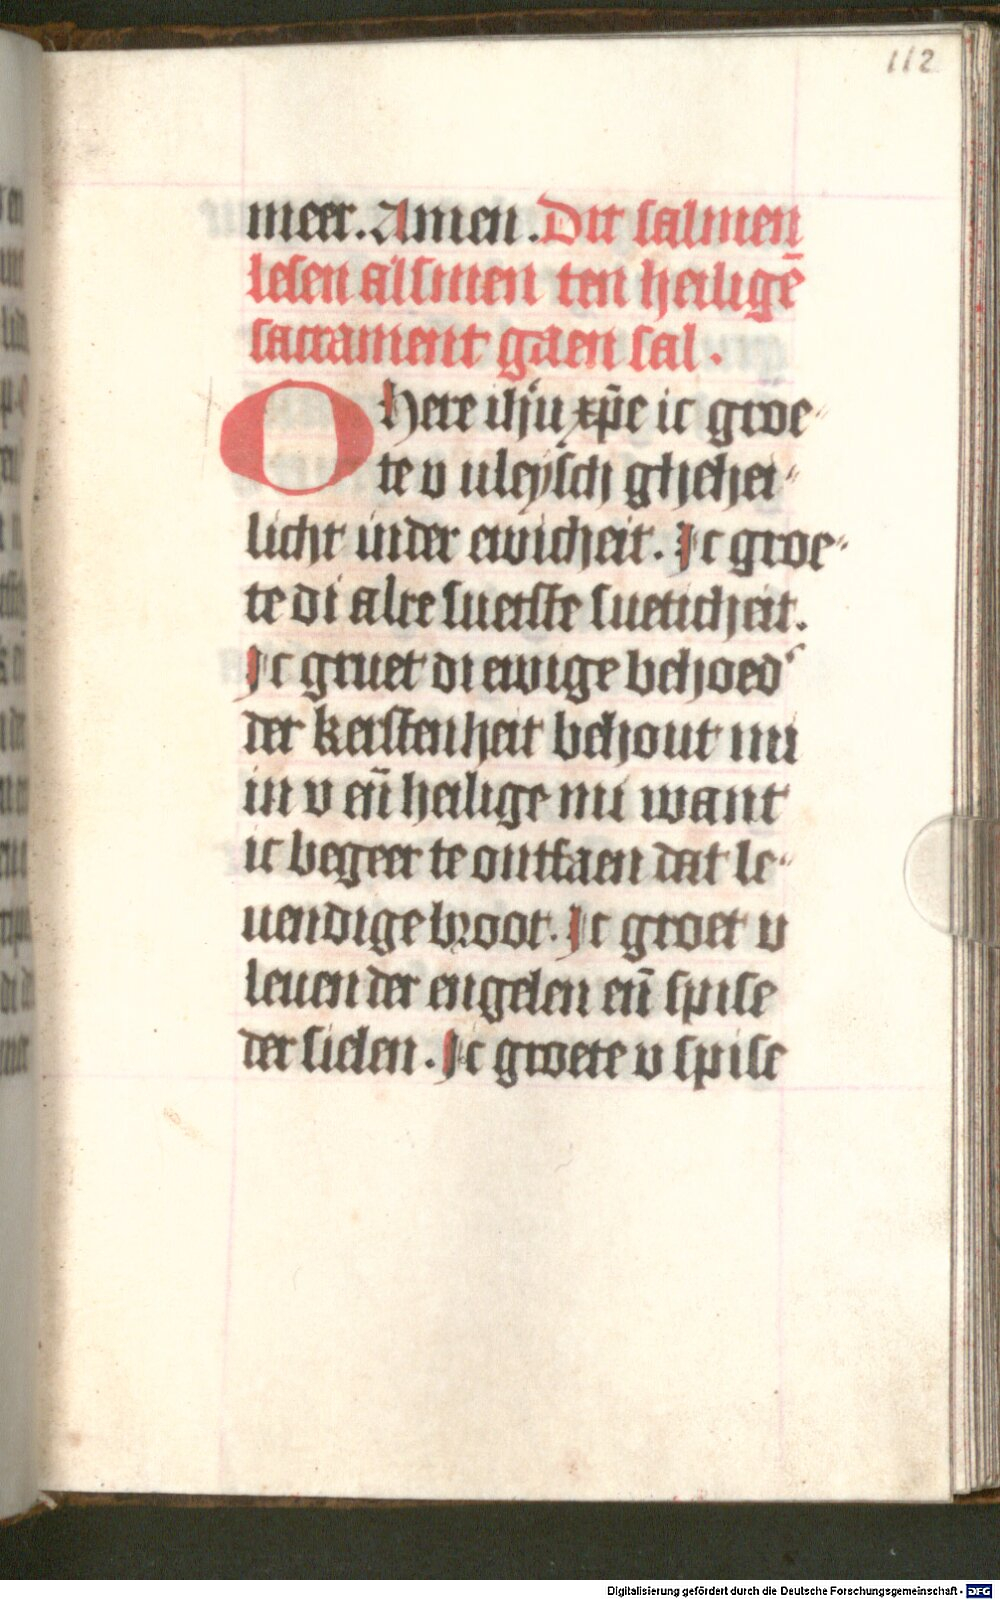 112
meer. Amen. Dit salmen
lesen alsmen ten heiligē
sacrament gaen sal.
O here ihu xp̄e ic groe-
te v vleysch ghehei-
licht inder ewicheit. Ic groe-
te di alre suetste sueticheit.
Ic gruet di ewige behoed'
der kerstenheit behout mi
in v eñ heilige mi want
ic begeer te ontfaen dat le-
uendige broot. Ic groet v
leuen der engelen eñ spise
der sielen. Ic groete v spise
Digitalisierung gefördert durch die Deutsche Forschungsgemeinschaft - DFG